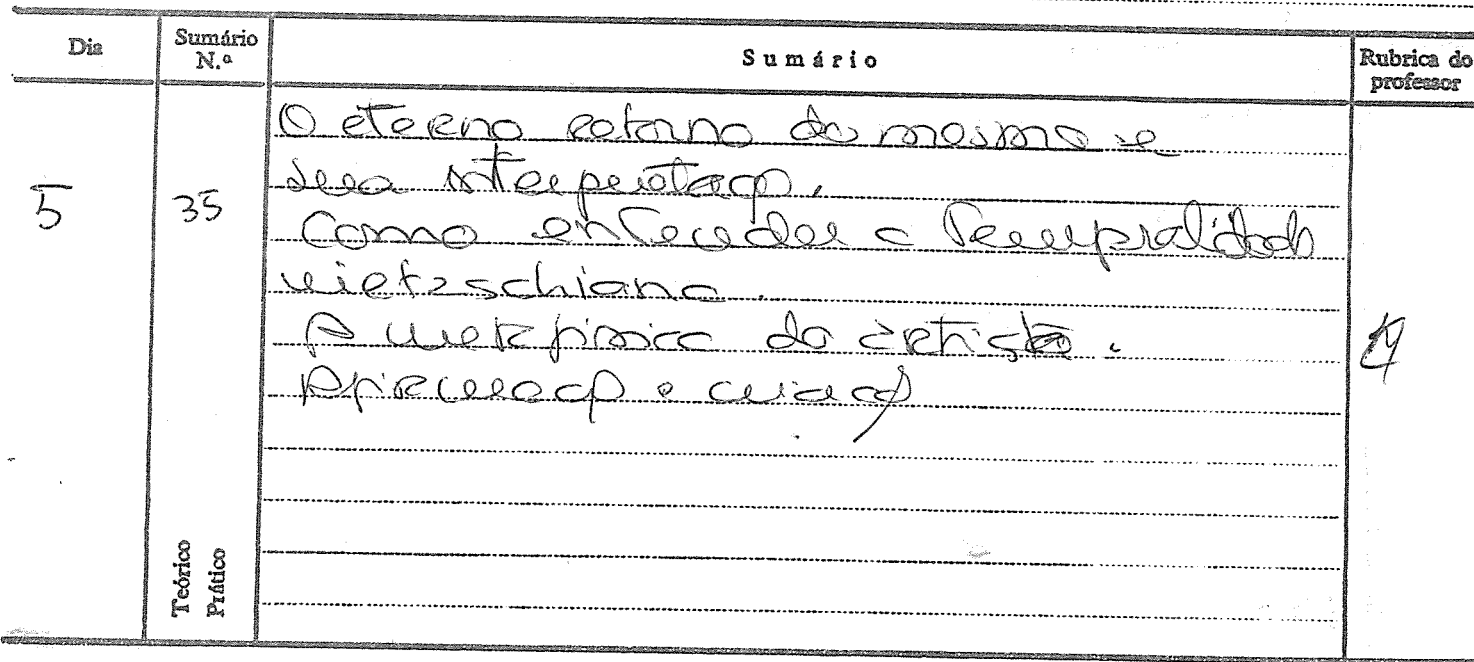 Dia
Sumário N.º
Sumário
Rubrica do professor
5
35
O eterno retorno do mesmo e
sua interpretação.
Como entender a temporalidade
nietzschiana.
A metafísica do artista.
Afirmação e criação
Teórico
Prático